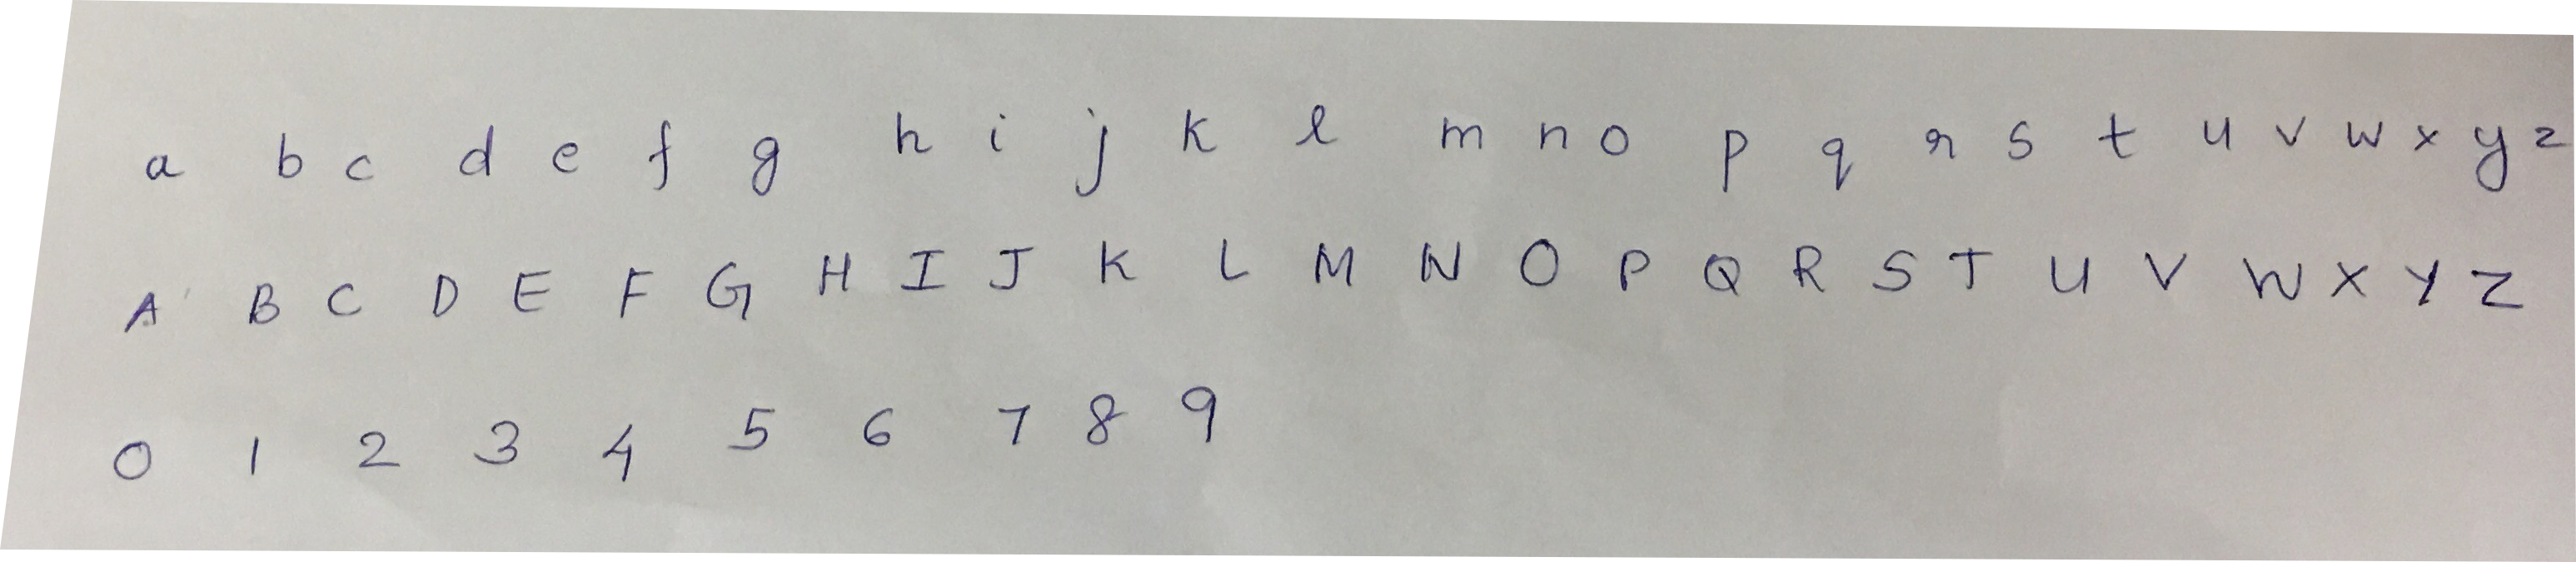 a b c d e f g h i j k l m n o p q r s t u v w x y z
A B C D E F G H I J K L M N O P Q R S T U V W X Y Z
0 1 2 3 4 5 6 7 8 9